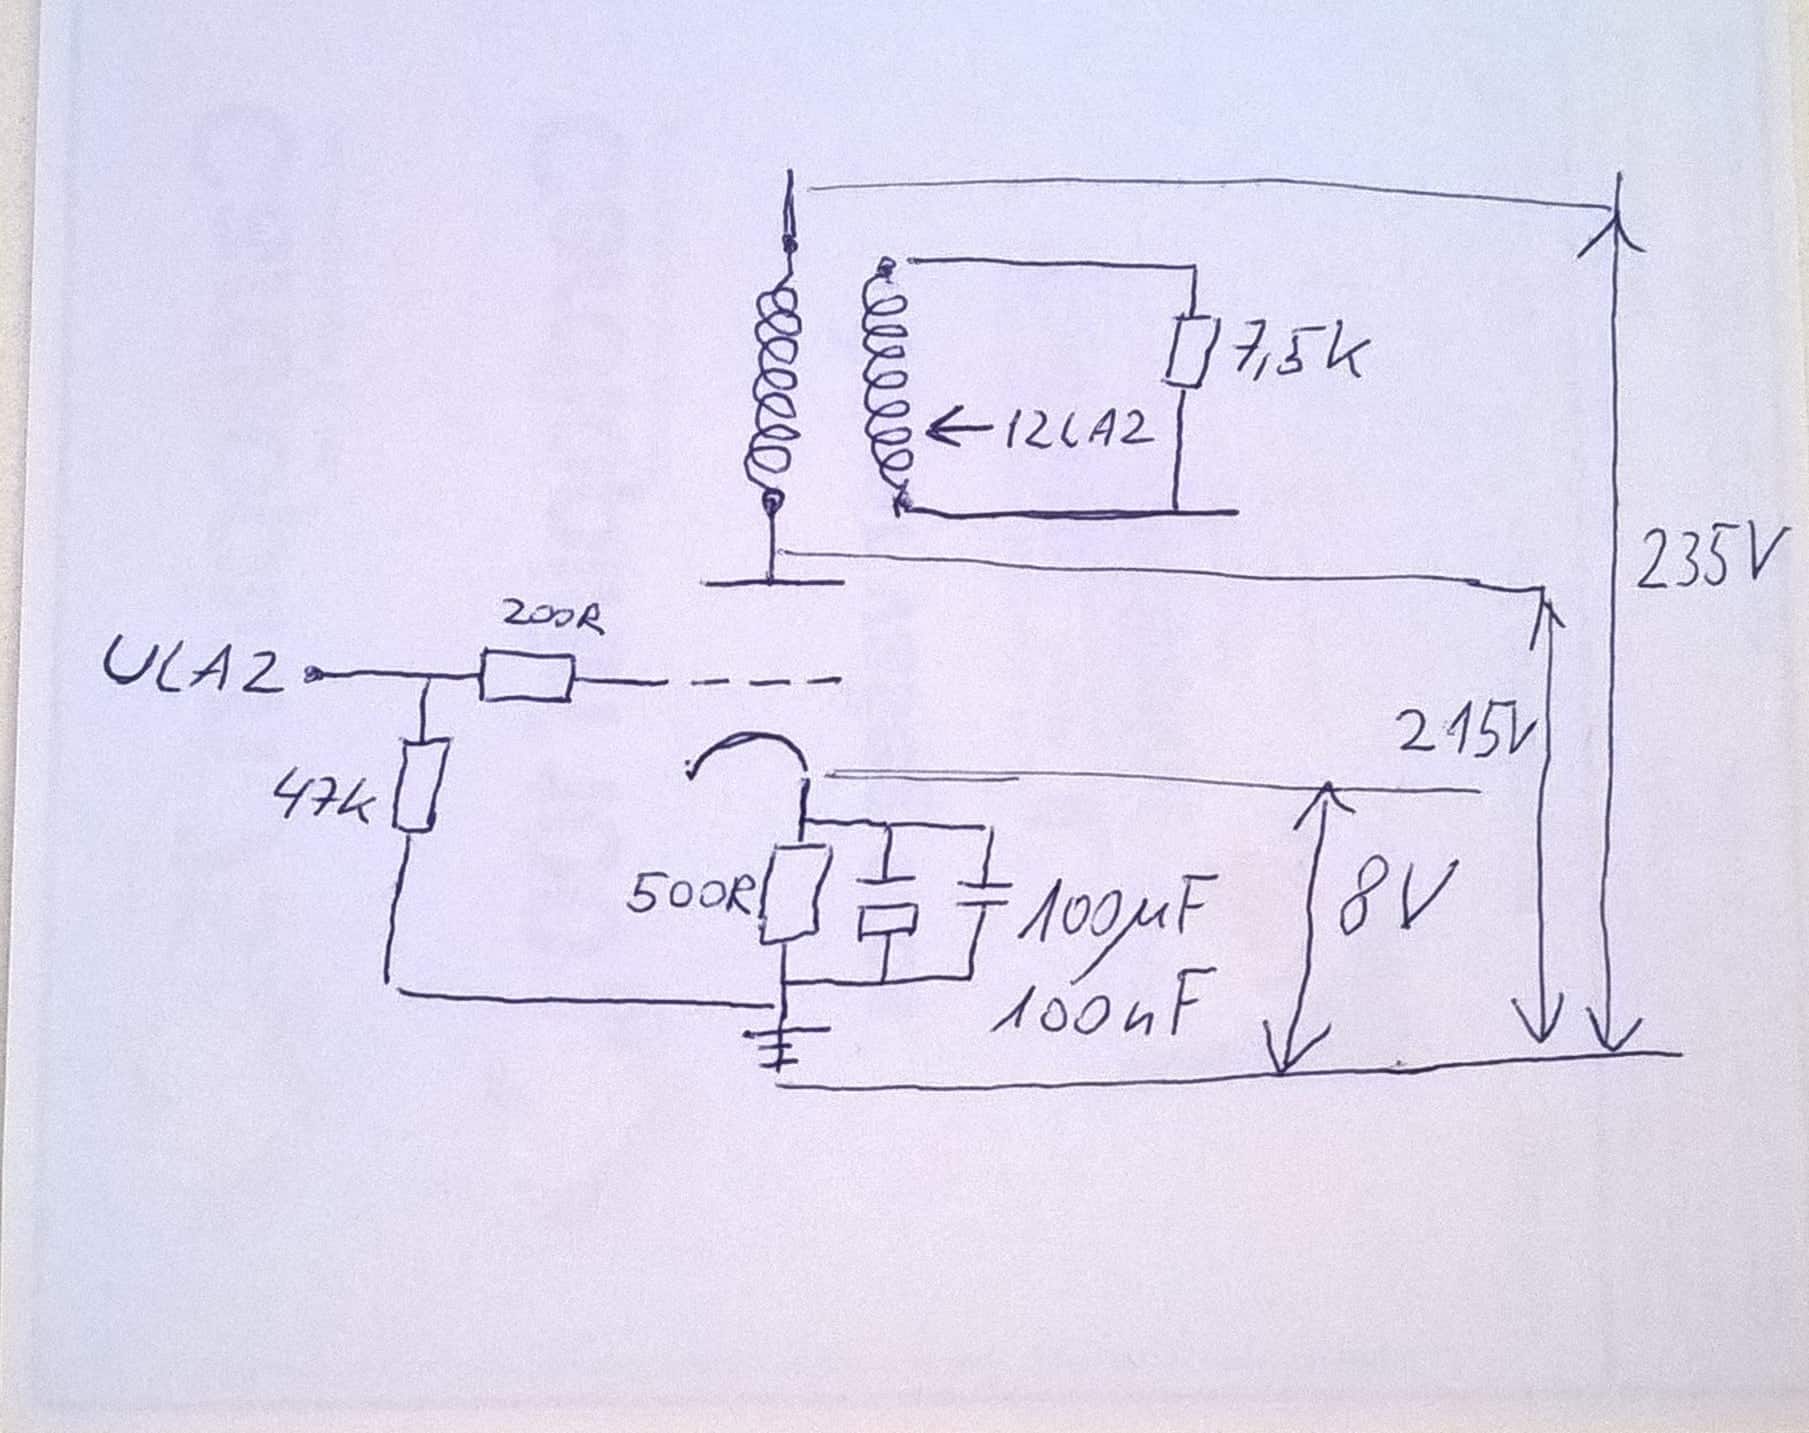 7,5k
←12LA2
235V
200R
ULA2
215V
47k
500R
8V
100µF
100nF